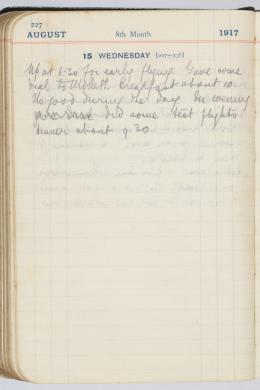 227
AUGUST 8th Month 1917
15 WEDNESDAY (227-138)
Up at 5-30 for early flying. Gave some
dual to Mollett. Breakfast about 10.
No good during the day. In evening
did some test flights
dinner about 9.20